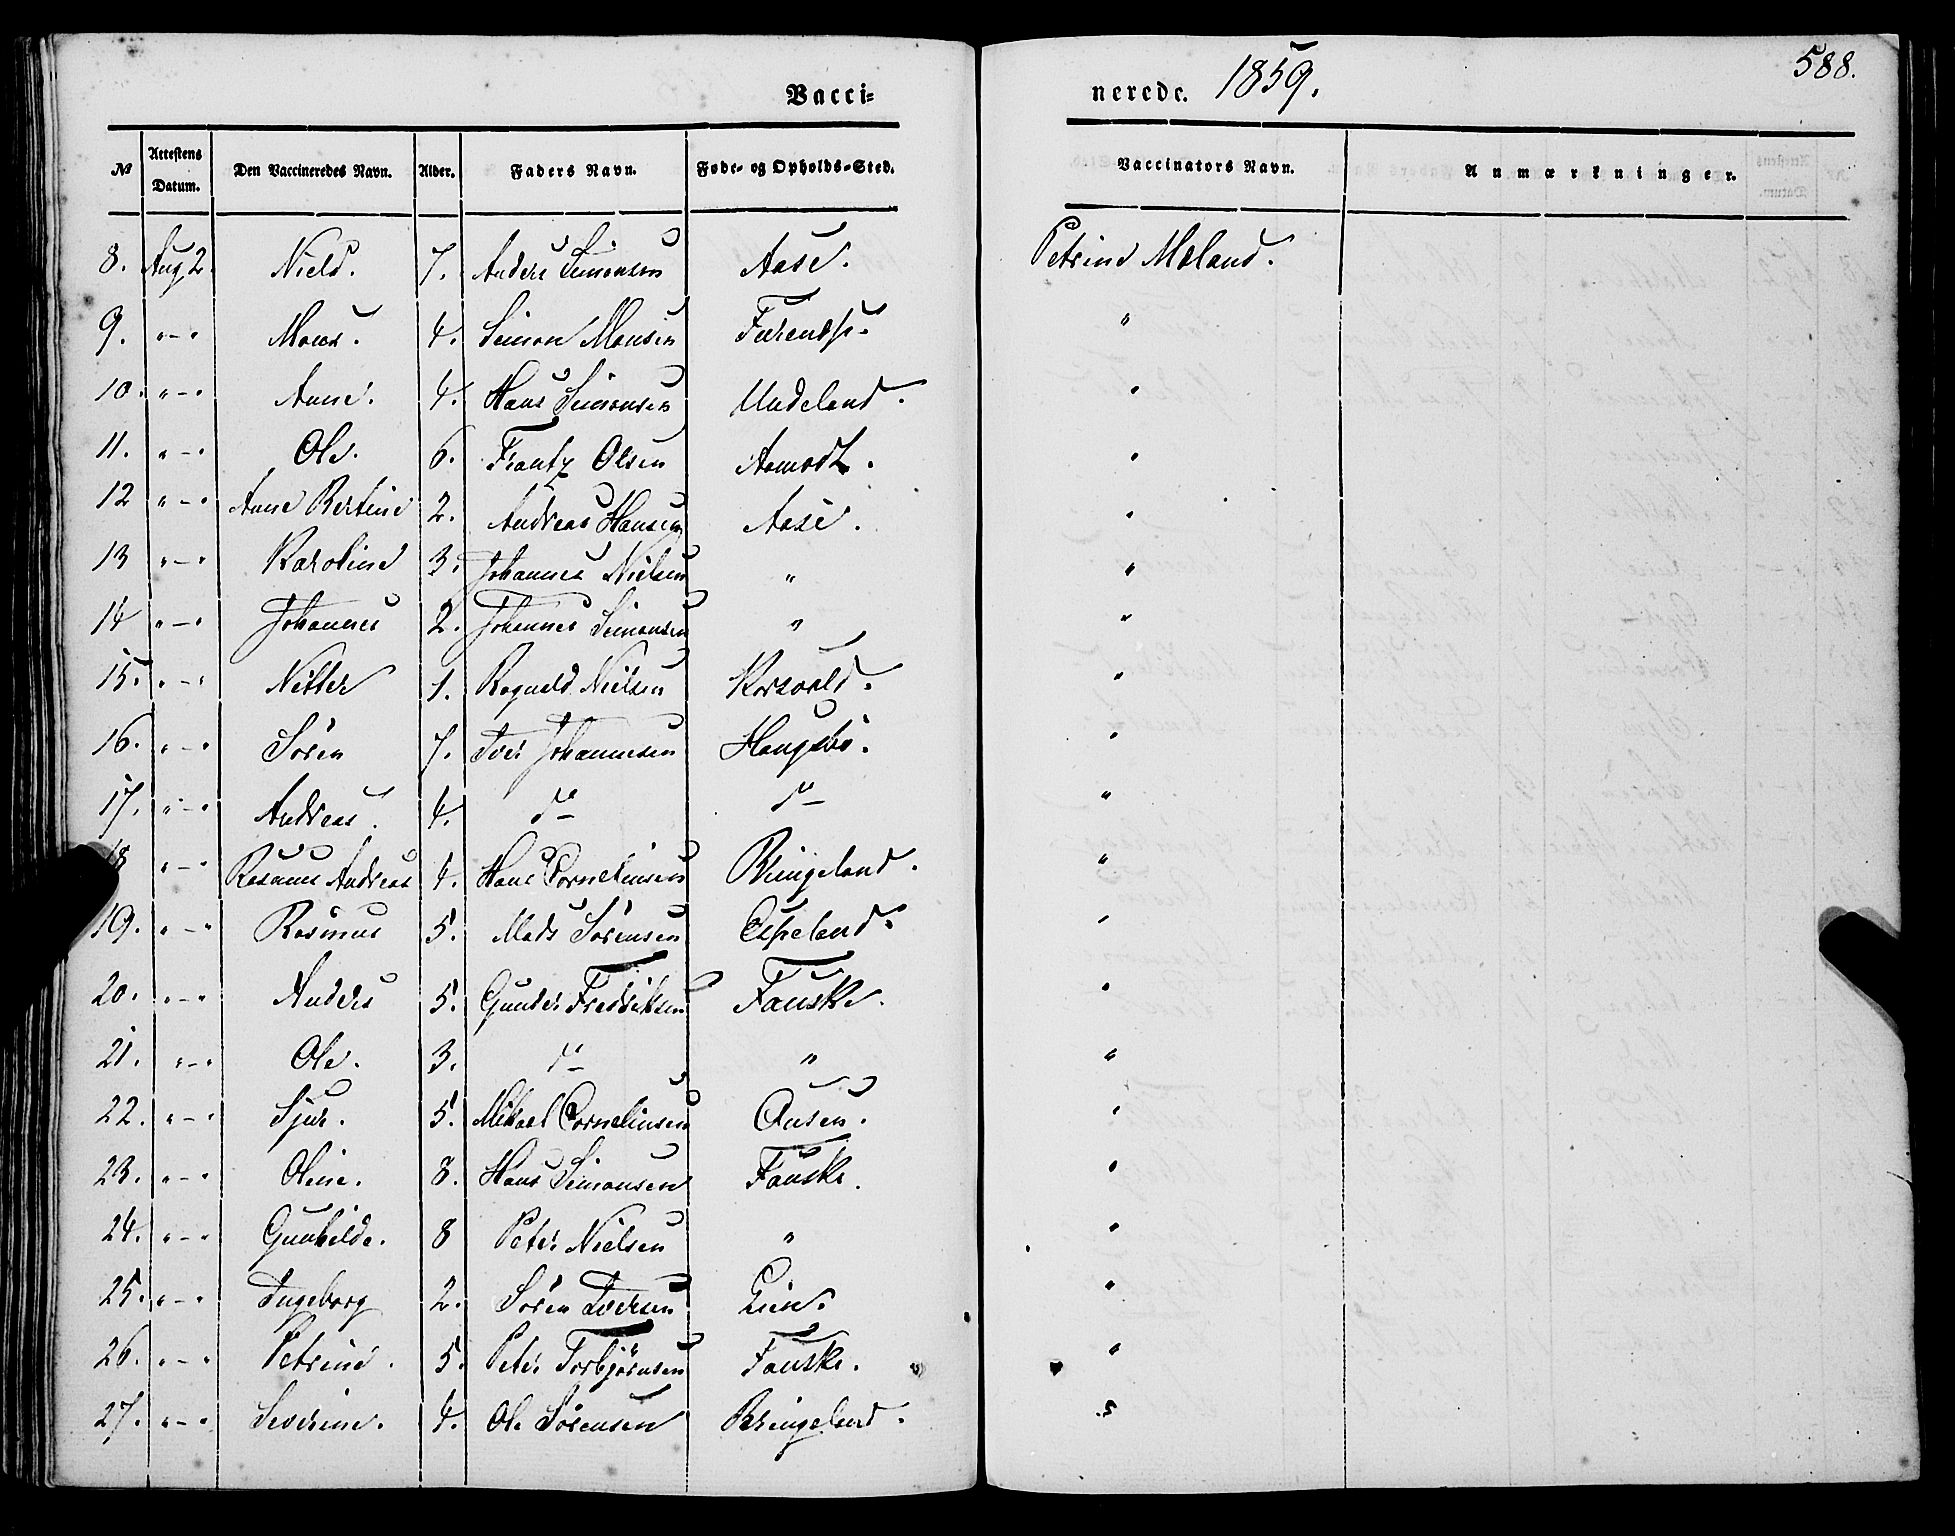 Vacci-
nerede. 1859.
588.
№ Attestens Datum. Den Vaccineredes Navn. Alder. Faders Navn. Føde- og Opholds-Sted. Vaccinators Navn. Anmærkninger.
8. Aug 2. Niels. 7. Anders Simonsen Aase. Petrine Mæland.
9. "-" Mons. 4. Simon Monsen "
10. "-" Anne. 4. Hans Simonsen Undeland. "
11. "-" Ole. 6. Frantz Olsen Aamodt. "
12 "-" Anne Bertine 2. Andreas Hansen Aase. "
13 "-" Karoline 3. Johannes Nielsen " "
14 "-" Johannes 2. Johannes Simonsen " "
15. "-" Nitter 1. Ragnald Nielsen Korsvold. "
16. "-" Sören 7. Iver Johannesen Haugsbö. "
17. "-" Andreas. 4. do do "
18 "-" Rasmus Andreas 4. Hans Corneliusen Bringeland. "
19. "-" Rasmus 5. Mads Sörensen Espeland. "
20. "-" Anders 5. Gunder Fredriksen Fauske. "
21. "-" Ole. 3. do " "
22. "-" Sjur. 5. Mikael Corneliusen "
23. "-" Oline. 8. Hans Simonsen Fauske. "
24. "-" Gunhilde. 8 Peter Nielsen " "
25. "-" Ingeborg 2. Sören Iversen "
26. "-" Petrine. 5. Peter Torbjörnsen Fauske. "
27. "-" Severine. 4. Ole Sörensen Bringeland. "